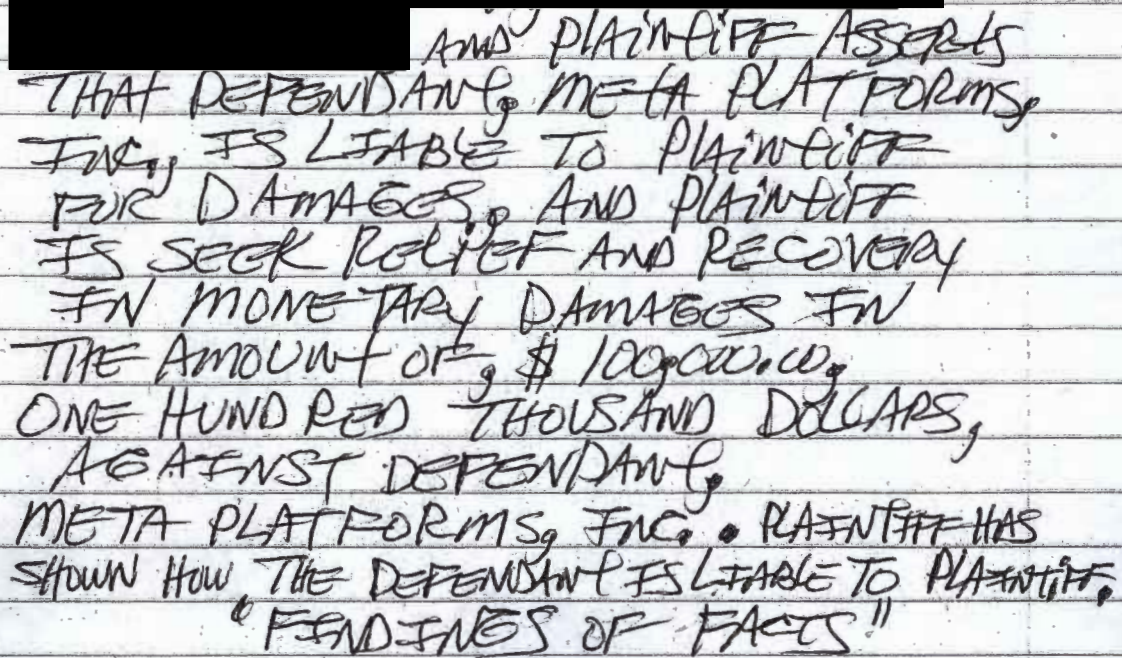 AND PLAiNtiFF ASSERtS
THAt DEFENDANt, META PLATFORMS,
INC., IS LIABLE TO PLAiNtiFF
FOR DAMAGES, AND PLAiNtiFF
IS SEEK RELIEF AND RECOVERY
IN MONETARY DAMAGES IN
THE AMOUNt OF, $ 100,000.00,
ONE HUNDRED THOUSAND DOLLARS,
AGAINST DEFENDANt,
META PLATFORMS, INC. . PLAINTIFF HAS
SHOWN HOW THE DEFENDANt IS LIABLE TO PLAINTiFF.
"FINDINGS OF FACTS"